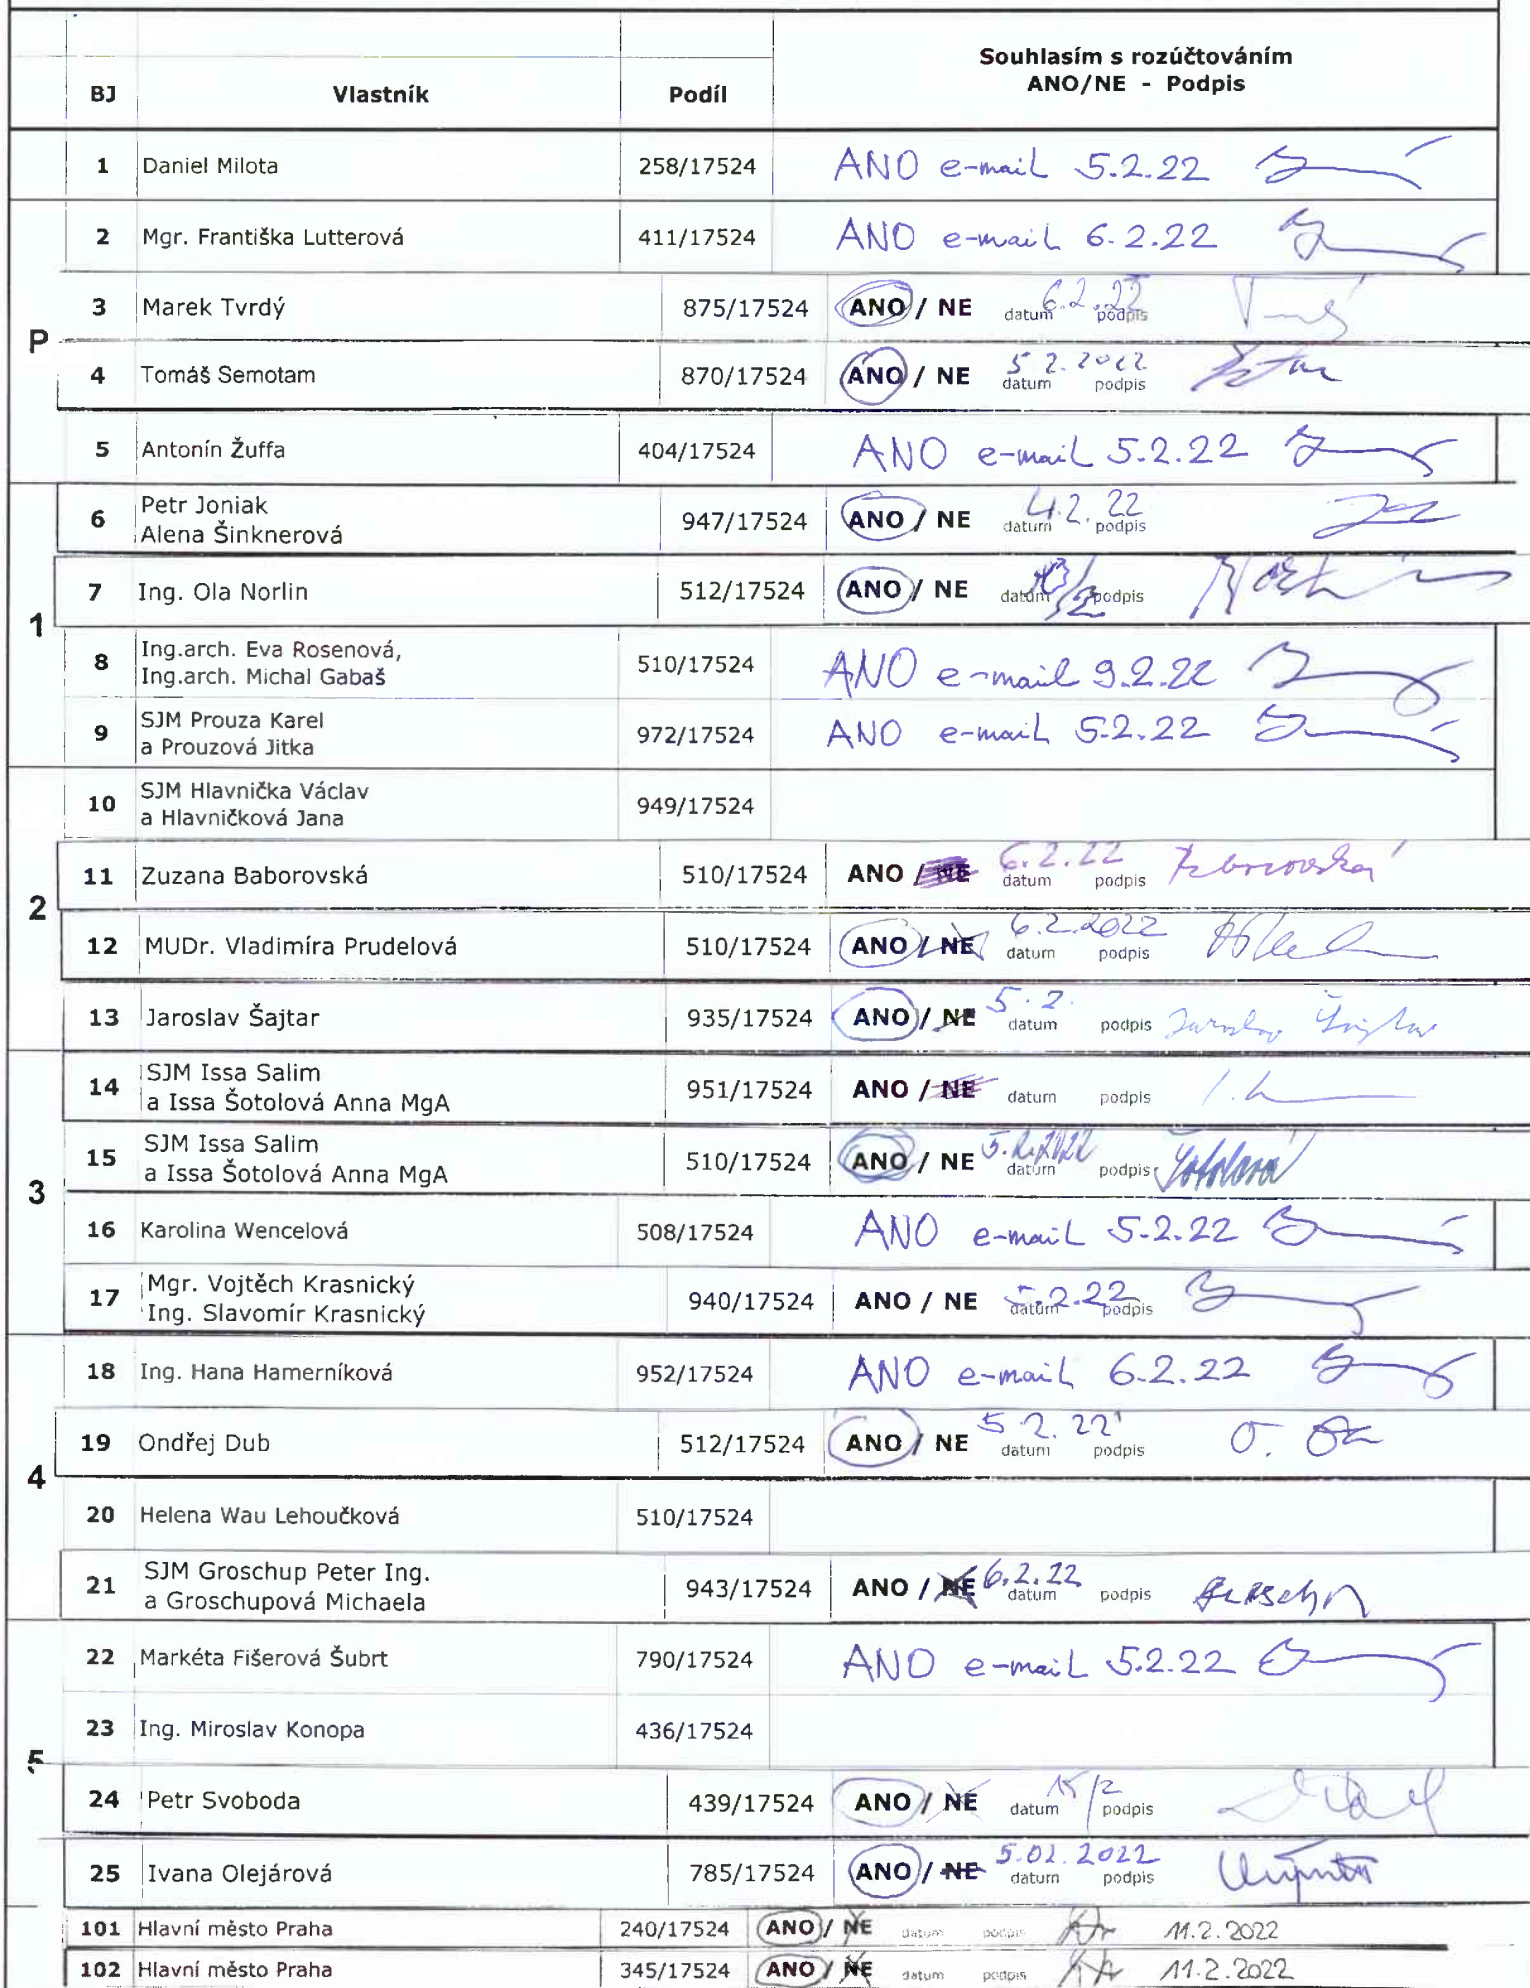 BJ Vlastník Podíl Souhlasím s rozúčtováním
ANO/NE - Podpis
1 Daniel Milota 258/17524 ANO e-mail 5.2.22
2 Mgr. Františka Lutterová 411/17524 ANO e-mail 6.2.22
P
3 Marek Tvrdý 875/17524 ANO / NE datum 6.2.22 podpis
4 Tomáš Semotam 870/17524 ANO / NE datum 5 2. 2022 podpis
5 Antonín Žuffa 404/17524 ANO e-mail 5.2.22
6 Petr Joniak
Alena Šinknerová 947/17524 ANO / NE datum 4.2.22 podpis
1
7 Ing. Ola Norlin 512/17524 ANO / NE datum podpis
8 Ing.arch. Eva Rosenová,
Ing.arch. Michal Gabaš 510/17524 ANO e-mail 9.2.22
9 SJM Prouza Karel
a Prouzová Jitka 972/17524 ANO e-mail 5.2.22
10 SJM Hlavnička Václav
a Hlavničková Jana 949/17524
2
11 Zuzana Baborovská 510/17524 ANO / NE datum 6.2.22 podpis
12 MUDr. Vladimíra Prudelová 510/17524 ANO / NE datum 6.2.2022 podpis
13 Jaroslav Šajtar 935/17524 ANO / NE datum 5.2. podpis Jaroslav Šajtar
14 SJM Issa Salim
a Issa Šotolová Anna MgA 951/17524 ANO / NE datum podpis
3
15 SJM Issa Salim
a Issa Šotolová Anna MgA 510/17524 ANO / NE datum 5.2.2022 podpis Šotolová
16 Karolina Wencelová 508/17524 ANO e-mail 5.2.22
17 Mgr. Vojtěch Krasnický
Ing. Slavomír Krasnický 940/17524 ANO / NE datum 5.2.22 podpis
18 Ing. Hana Hamerníková 952/17524 ANO e-mail 6.2.22
4
19 Ondřej Dub 512/17524 ANO / NE datum 5 2. 22 podpis
20 Helena Wau Lehoučková 510/17524
21 SJM Groschup Peter Ing.
a Groschupová Michaela 943/17524 ANO / NE datum 6.2.22 podpis
22 Markéta Fišerová Šubrt 790/17524 ANO e-mail 5.2.22
23 Ing. Miroslav Konopa 436/17524
5
24 Petr Svoboda 439/17524 ANO / NE datum 15/2 podpis
25 Ivana Olejárová 785/17524 ANO / NE datum 5.02.2022 podpis
101 Hlavní město Praha 240/17524 ANO / NE datum podpis 11.2.2022
102 Hlavní město Praha 345/17524 ANO / NE datum podpis 11.2.2022